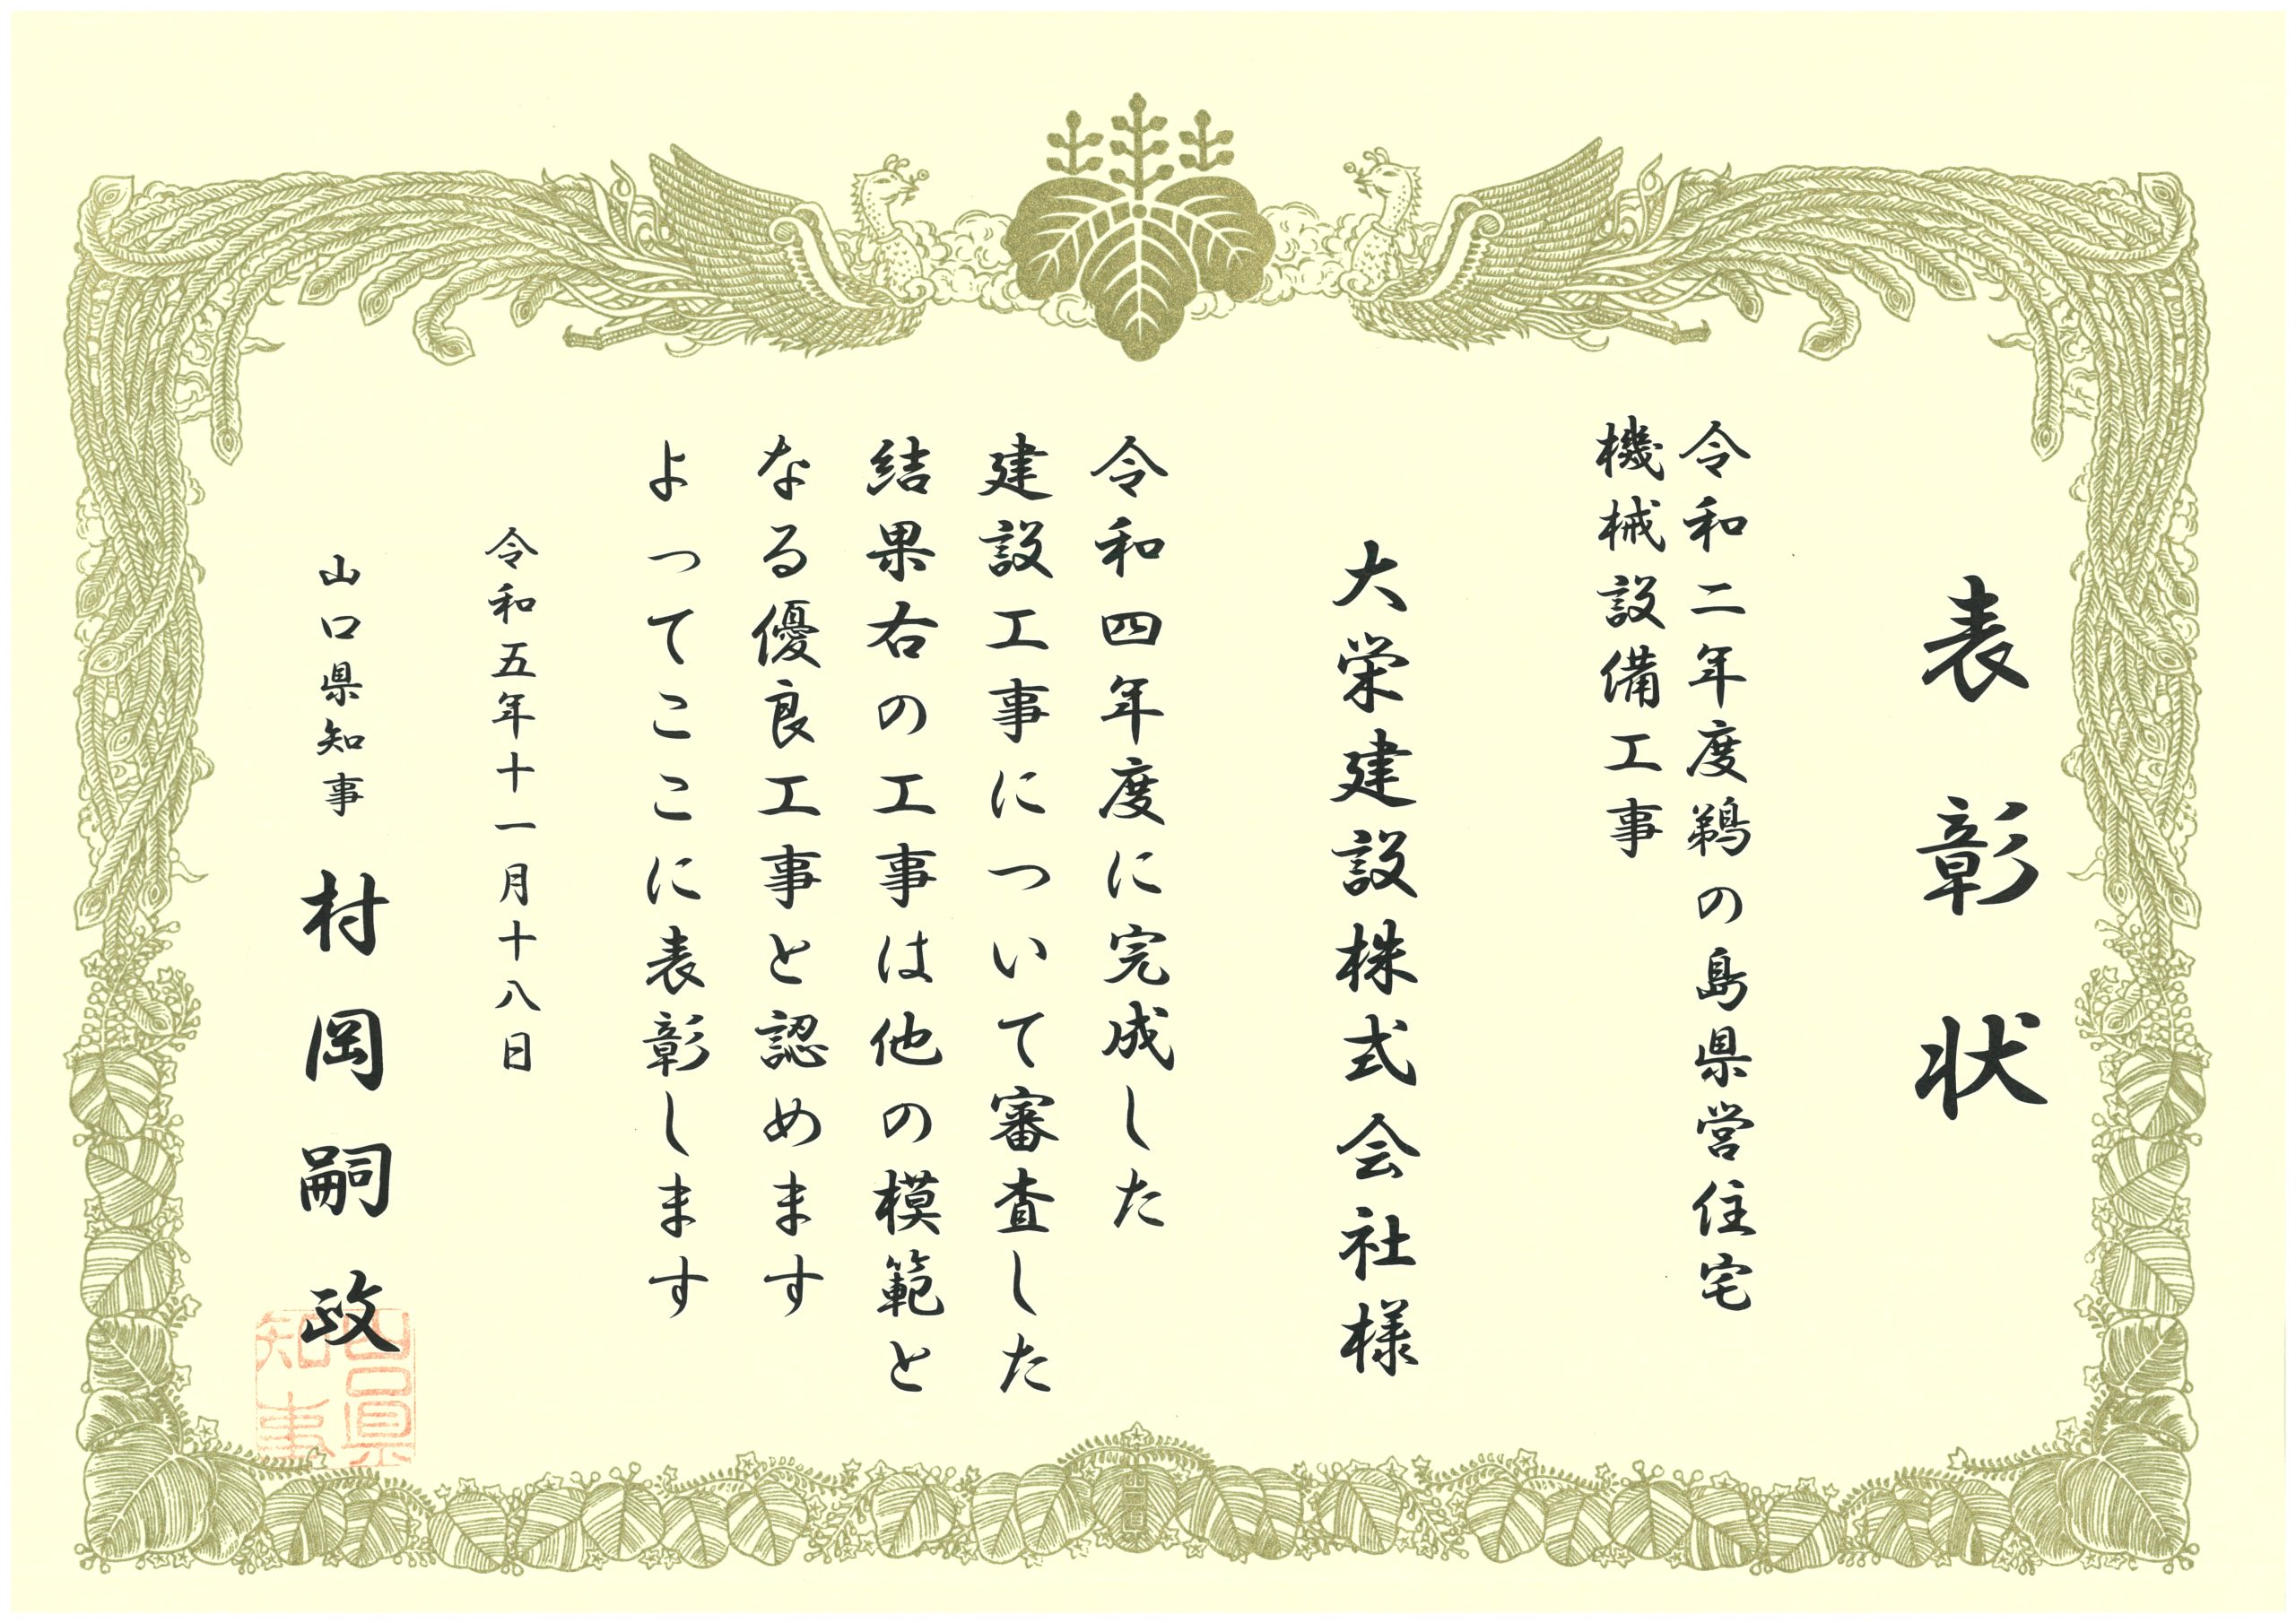 表彰状
令和二年度鵜の島県営住宅
機械設備工事
大栄建設株式会社様
令和四年度に完成した
建設工事について審査した
結果右の工事は他の模範と
なる優良工事と認めます
よってここに表彰します
令和五年十一月十八日
山口県知事 村岡嗣政
山口県
知事